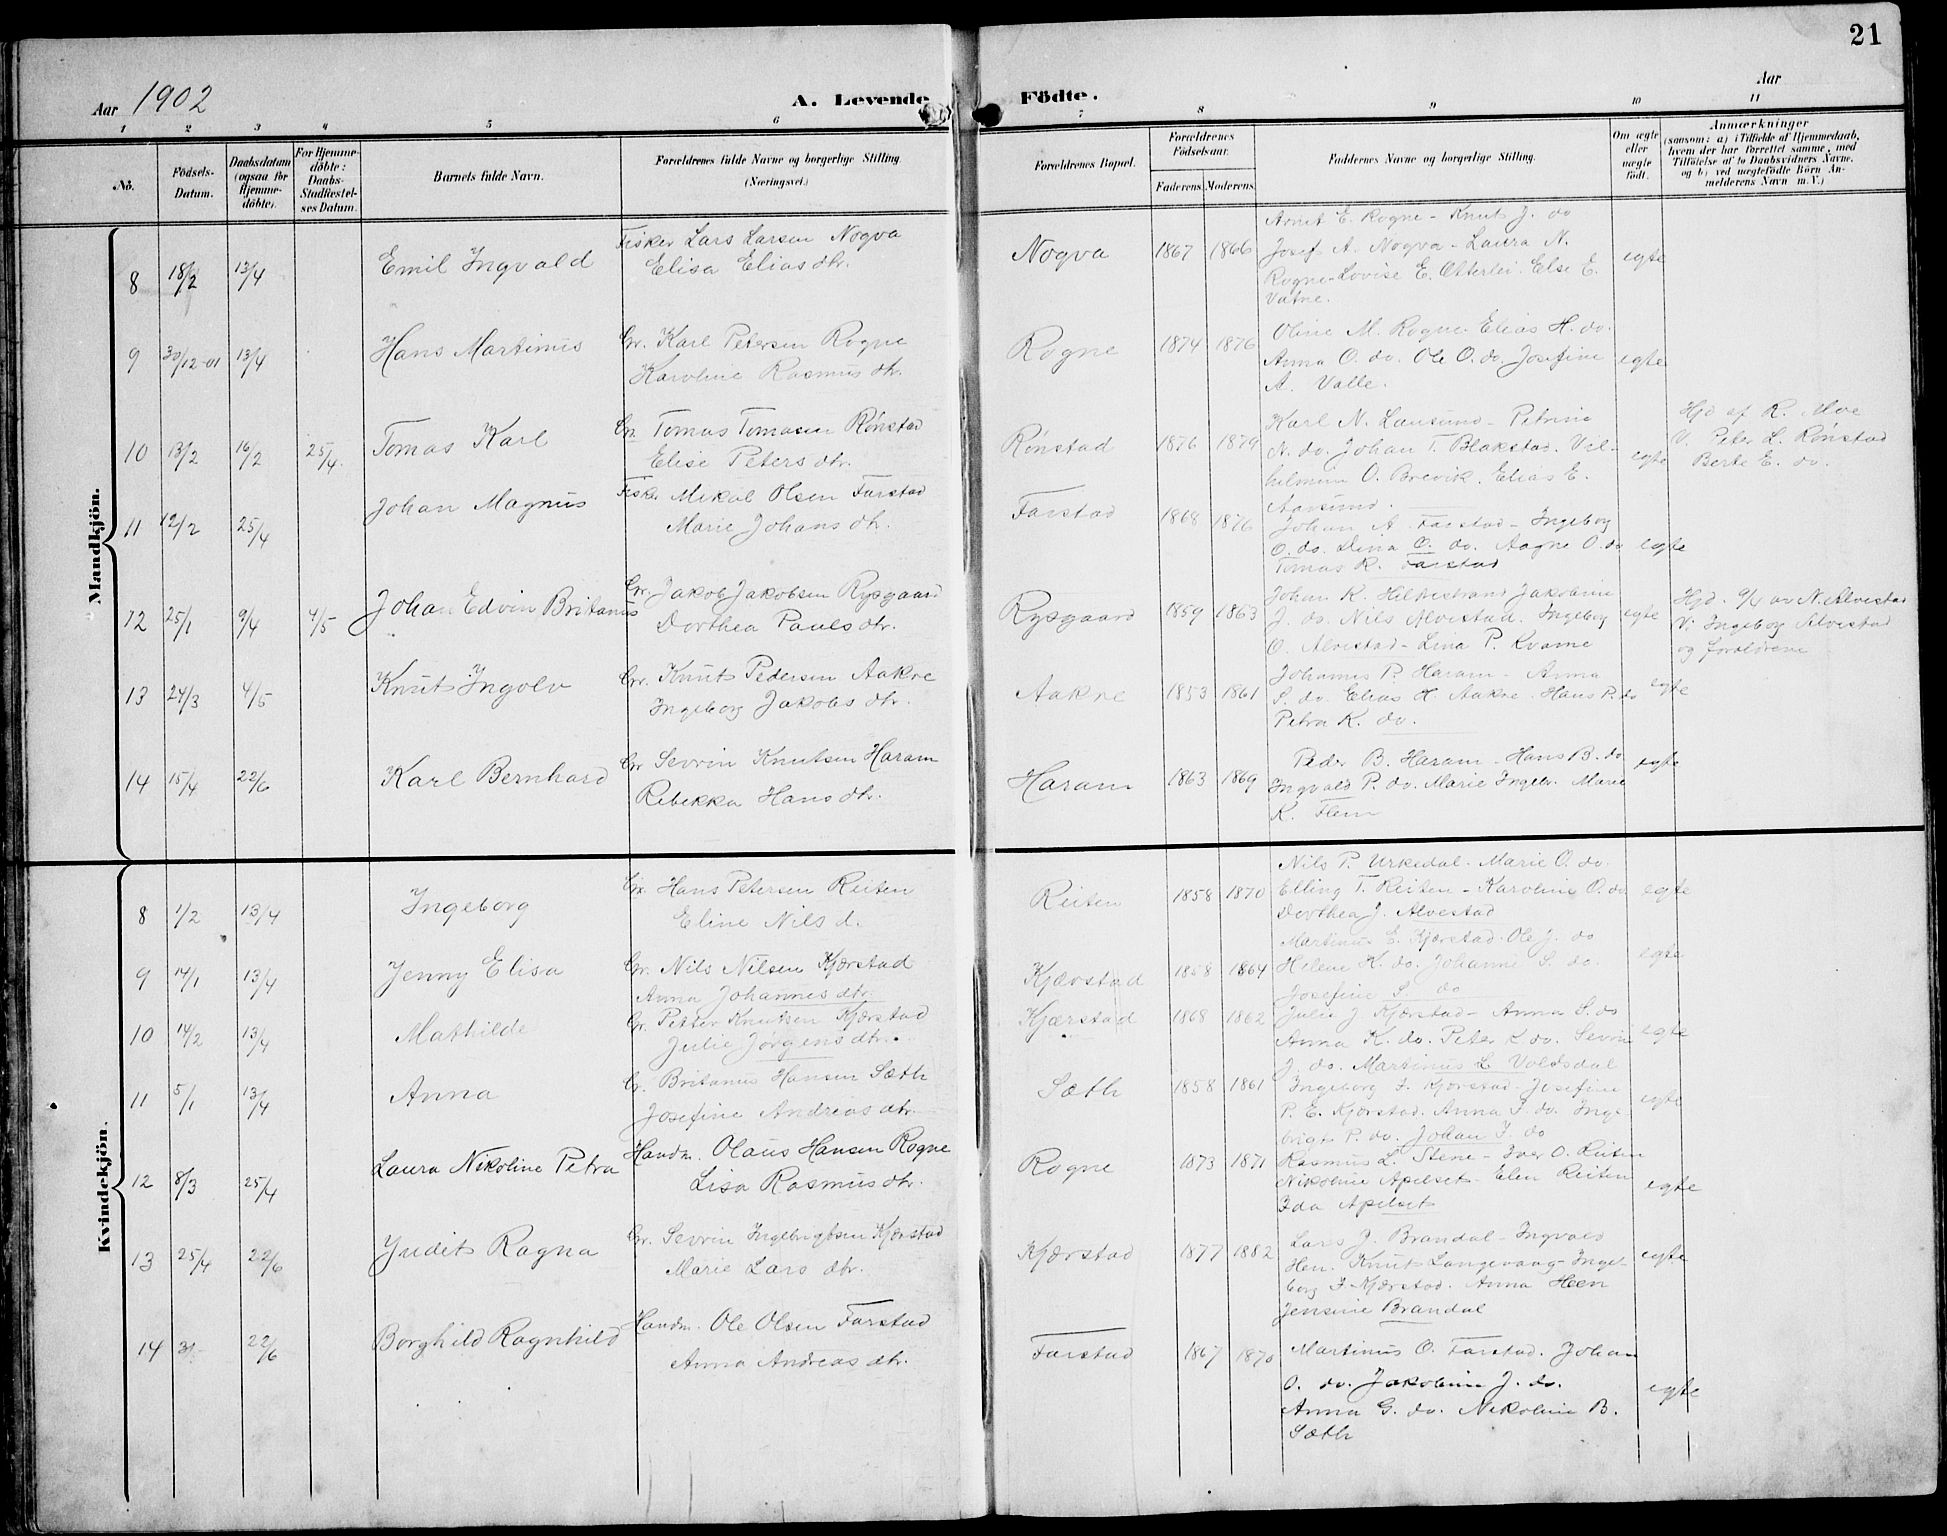 21
Aar 1902
A. Levende Födte.
Aar
1 2 3 4 5 6 7 8 9 10 11
No.
Födsels-Datum.
Daabsdatum (ogsaa for Hjemme-döbte).
For Hjemme-döbte: Daabs-Stadfæstel-ses Datum.
Barnets fulde Navn.
Forældrenes fulde Navne og borgerlige Stilling (Næringsvei.)
Forældrenes Bopæl.
Forældrenes Födselsaar.
Faderens. Moderens.
Faddernes Navne og borgerlige Stilling.
Om ægte eller uægte födt.
Anmærkninger
(saasom: a) i Tilfælde af Hjemmedaab,
hvem der har forrettet samme, med
Tilföielse af to Daabsvidners Navne,
og b) ved uægtefödte Börn An-
melderens Navn m. V.)
Mandkjön.
8 18/2 13/4 Emil Ingvald
Fisker Lars Larsen Nogva
Elisa Eliasdtr.
Nogva 1867 1866
Arnt E. Rogne - Knut J. do
Josef A. Nogva - Laura N.
Rogne - Lovise E. Otterlei. Else E.
Vatne.
egte
9 30/12-01 13/4 Hans Martinus
Gr. Karl Petersen Rogne
Karoline Rasmusdtr.
Rogne 1874 1876
Oline M. Rogne. Elias H. do.
Anna O. do. Ole O. do. Josefine
A. Valle.
egte
10 13/2 16/2 25/4. Tomas Karl
Gr. Tomas Tomasen Rönstad
Elise Petersdtr.
Rönstad 1876 1879
Karl N. Lausund - Petrine
N. do. Johan T. Blakstad. Vil-
helmine O. Brevik. Elias E.
Aarsund.
egte
Hjd af R. Moe
V. Peter L. Rönstad
Berte E. do.
11 12/2 25/4 Johan Magnus
Fisker Mikal Olsen Farstad
Marie Johansdtr.
Farstad 1868 1876
Johan A. Farstad - Ingeborg
O. do. Dina O. do. Aagne O. do
Tomas R. Farstad
egte
12 25/1 9/4 4/5 Johan Edvin Britanus
Gr. Jakob Jakobsen Rysgaard
Dorthea Paulsdtr.
Rysgaard 1859 1863
Johan K. Hildrestrand Jakobine
J. do. Nils Alvestad. Ingeborg
O. Alvestad - Lina P. Kvame
egte
Hjd. 9/4 av N. Alvestad
V: Ingeborg Alvestad
og foreldrene
13 24/3 4/5 Knut Ingolv
Gr. Knut Pedersen Aakre
Ingeborg Jakobsdtr.
Aakre 1853 1861
Johannes P. Haram - Anna
S. do. Elias H. Aakre. Hans P. do
Petra K. do.
egte
14 15/4 22/6 Karl Bernhard
Gr Sevrin Knutsen Haram
Rebekka Hansdtr.
Haram 1863 1869
Peder B. Haram - Hans B. do
Ingvald P. do. Marie Ingebr. Marie
K. Flem
egte
Kvindekjön.
8 1/2 13/4 Ingeborg
Gr. Hans Petersen Reiten
Eline Nilsd.
Reiten 1858 1870
Nils P. Urkedal. Marie O. do.
Elling T. Reiten - Karoline O. do
Dorthea J. Alvestad
egte
9 14/1 13/4 Jenny Elisa
Gr. Nils Nilsen Kjærstad
Anna Johannesdtr.
Kjærstad 1858 1864
Martinus E. Kjærstad. Ole J. do
Helene K. do. Johanne S. do.
Josefine S. do
egte
10 14/2 13/4 Mathilde
Gr. Petter Knutsen Kjærstad
Julie Jörgensdtr.
Kjærstad 1868 1862
Julie J Kjærstad - Anna S. do
Anna K. do. Peter K do. Sevrin
J. do. Martinus L Voldsdal
egte
11 5/1 13/4 Anna
Gr. Britanus Hansen Sæth
Josefine Andreasdtr.
Sæth 1858 1861
Ingeborg I. Kjærstad. Josefine
P. E. Kjærstad. Anna I. do. Inge-
brigt P. do. Johan I. do
egte
12 8/3 25/4 Laura Nikoline Petra
Handm. Olaus Hansen Rogne
Lisa Rasmusdtr.
Rogne 1873 1871
Rasmus L. Stene - Iver O. Reiten
Nikoline Apelset - Elen Reiten
Ida Apelset
egte
13 25/4 22/6 Judit Ragna
Gr. Sevrin Ingebrigtsen Kjærstad
Marie Larsdtr.
Kjærstad 1877 1882
Lars J. Brandal - Ingvald
Hen. Knut Langevaag - Inge-
borg I. Kjærstad. Anna Heen
Jensine Brandal
egte
14 31 22/6 Borghild Ragnhild
Handm. Ole Olsen Farstad
Anna Andreasdtr.
Farstad 1867 1870
Martinus O. Farstad. Johan
O. do. Jakobine J. do.
Anna G. do. Nikoline B.
Sæth
egte